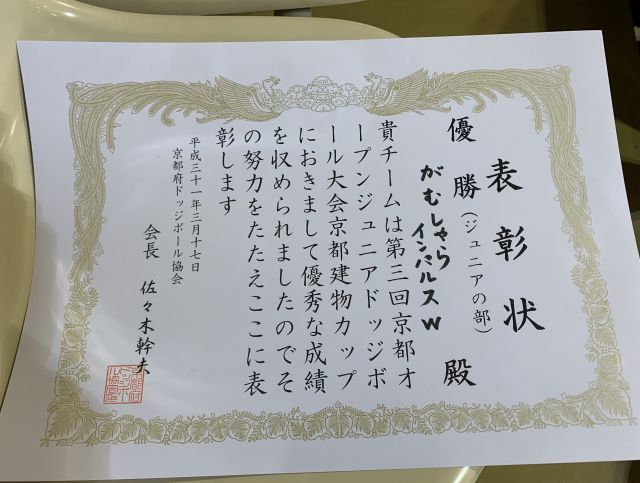 表彰状
優勝(ジュニアの部)
がむしゃら
インパルスW
殿
貴チームは第三回京都オ
ープンジュニアドッジボ
ール大会京都建物カップ
におきまして優秀な成績
を収められましたのでそ
の努力をたたえここに表
彰します
平成三十一年三月十七日
京都府ドッジボール協会
会長 佐々木幹夫